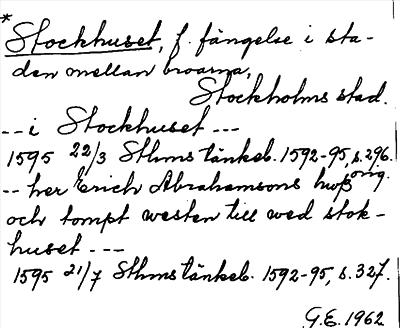 * Stockhuset, f. fängelse i sta-
den mellan broarna,
Stockholms stad.
-- i Stockhuset ---
1595 22/3 Sthms tänkeb. 1592-95, s. 296.
-- her Erich Abrahamsons huoß orig.
och tompt westen till wed stok-
huset ---
1595 21/7 Sthms tänkeb. 1592-95, s. 327.
G.E. 1962